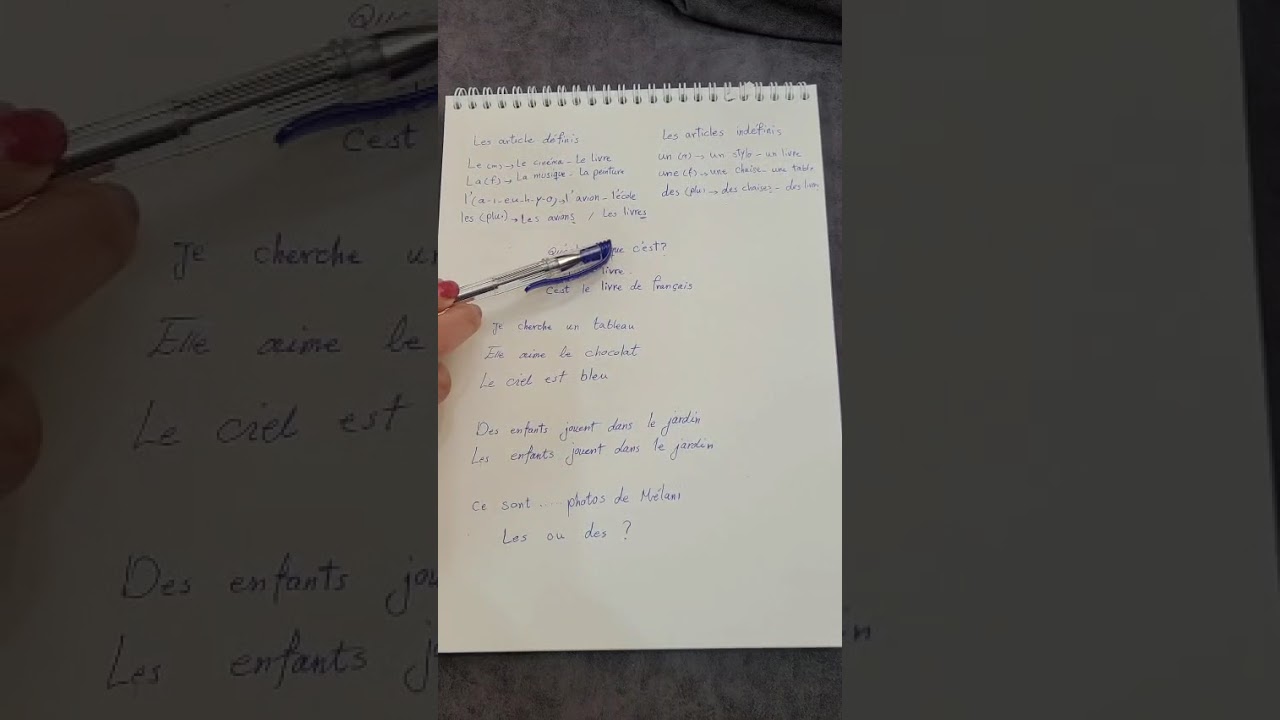 Les article définis
Le (m) → Le cinéma - Le livre
La (f) → La musique - La peinture
l' (a-i-e-u-h-y-o) → l'avion - l'école
les (plu) → Les avions / Les livres
Les articles indéfinis
un (m) → un stylo - un livre
une (f) → une chaise - une table
des (plu) → des chaises - des
que c'est?
livre.
C'est le livre de français
Je cherche un tableau
Elle aime le chocolat
Le ciel est bleu
Des enfants jouent dans le jardin
Les enfants jouent dans le jardin
Ce sont ..... photos de Mélani
Les ou des ?